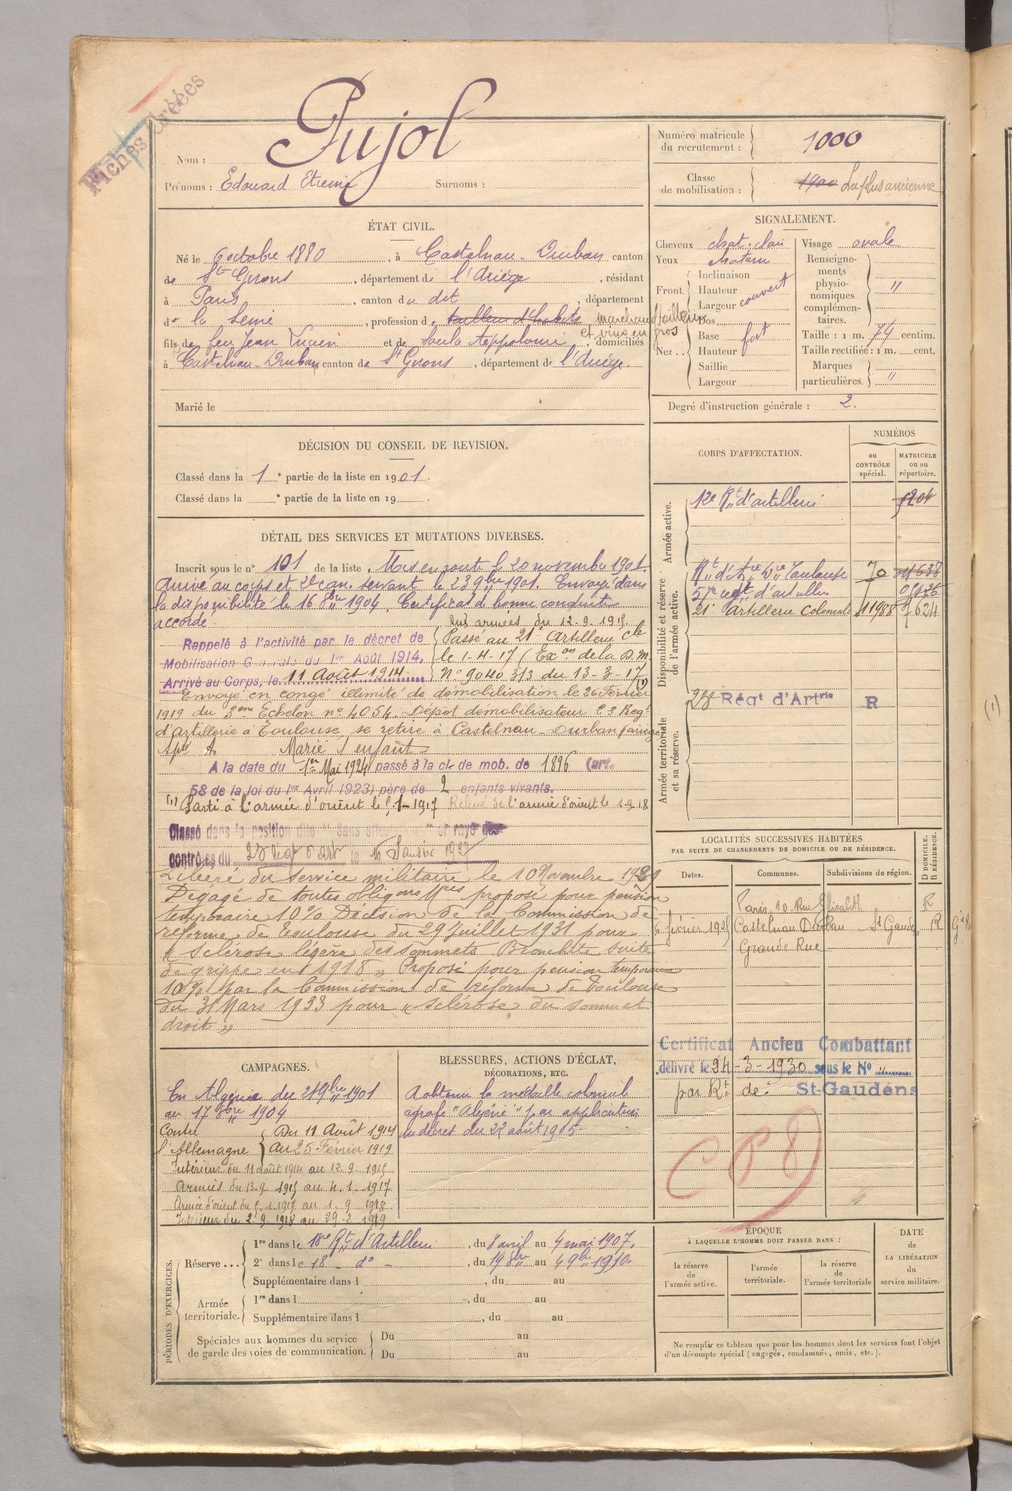 Fiches créées
Nom : Pujol
Prénoms : Edouard Etienne Surnoms :
Numéro matricule du recrutement : 1000
Classe de mobilisation : 1900 La plus ancienne
ÉTAT CIVIL.
Né le 6 octobre 1880, à Castelnau-Durban canton
de St Girons, département de l'Ariège, résidant
à Paris, canton du dit, département
de la Seine, profession de tailleur d'habits marchand tailleur
et vins en gros
fils de feu Jean Lucien et de, domiciliés
à Castelnau-Durban canton de St Girons, département de l'Ariège.
Marié le
SIGNALEMENT.
Cheveux chat. clair
Yeux
Front. Inclinaison
Hauteur
Largeur couvert
Nez.. Dos
Base fort
Hauteur
Saillie
Largeur
Visage ovale
Renseignements physionomiques complémentaires. "
Taille : 1 m. 74 centim.
Taille rectifiée : 1 m. cent.
Marques particulières. "
Degré d'instruction générale : 2.
DÉCISION DU CONSEIL DE REVISION.
Classé dans la 1e partie de la liste en 1901.
Classé dans la e partie de la liste en 19
DÉTAIL DES SERVICES ET MUTATIONS DIVERSES.
Inscrit sous le n° 101 de la liste. Mis en route le 20 novembre 1901.
Arrivé au corps et 2e can. servant le 23 9bre 1901. Envoyé dans
la disponibilité le 16 1904, Certificat de bonne conduite
accordé.
aux armées du 12.9.1915.
Rappelé à l'activité par le décret de
Mobilisation Générale du 1er Août 1914.
Arrivé au Corps, le 11 Août 1914
Passé au 21e Artillerie Cle
le 1-4-17 (Exon de la D.M.
N° 9040 3/3 du 13-3-17) (1)
Envoyé en congé illimité de démobilisation le 26 Février
1919 du 3ème Echelon n° 4054. Dépôt démobilisateur Regt
d'Artillerie à Toulouse, se retire à Castelnau-Durban (Ariège)
Marié 1 enfant
A la date du 1er Mai 1924 passé à la cl. de mob. de 1896 (art.
58 de la loi du 1er Avril 1923) père de 2 enfants vivants.
(1) Parti à l'armée d'orient le 5-1-1917 Relevé de l'armée d'orient le 1-9-18
Classé dans la position dite "Sans affectation" et rayé des
contrôles du 23 Regt d'art le 16 Janvier 1927
Libéré du service militaire le 10 Novembre 1931
Dégagé de toutes obligons Mres proposé pour pension
temporaire 10% Décision de la Commission de
réforme de Toulouse du 29 Juillet 1931 pour
"Sclérose légère des sommets Bronchite suite
de grippe en 1918" Proposé pour pension temporaire
10% par la Commission de réforme de Toulouse
du 31 Mars 1933 pour "sclérose du sommet
droit"
CORPS D'AFFECTATION.
NUMÉROS
au CONTRÔLE spécial.
MATRICULE ou au répertoire.
Armée active.
12e Rt d'artillerie 1204
Disponibilité et réserve de l'armée active.
Rt d'Artie de Toulouse 70
57e regt d'artillerie
21e Artillerie Coloniale 11988 7624
Armée territoriale et sa réserve.
23e Régt d'Artrie R
LOCALITÉS SUCCESSIVES HABITÉES
PAR SUITE DE CHANGEMENTS DE DOMICILE OU DE RÉSIDENCE.
Dates. Communes. Subdivisions de région. D DOMICILE, R RÉSIDENCE.
Paris, 10 Rue R
6 février 193 Castelnau Durban St Gaudens R
Grande Rue
Certificat Ancien Combattant
délivré le 24-3-1930 sous le N°
par Rt de : St-Gaudens
CP8
CAMPAGNES.
En Algérie du 21 9bre 1901
au 17 1904
Contre l'Allemagne
Du 11 Août 1914
au 25 Février 1919
Intérieur du 11 août 1914 au 12.9.1915
Armées du 13.9.1915 au 4.1.1917
Armée d'orient du 5.1.1917 au 1.9.1918
Intérieur du 2.9.1918 au 1919
BLESSURES, ACTIONS D'ÉCLAT,
DÉCORATIONS, ETC.
A obtenu la médaille coloniale
agrafe "Algérie" par application
du décret du 22 août 1905.
PÉRIODES D'EXERCICES.
Réserve...
1re dans le 18e Rt d'Artillerie, du 8 avril au 4 mai 1907.
2e dans le 18 do, du au 1910.
Supplémentaire dans l , du au
Armée territoriale.
1re dans l , du au
Supplémentaire dans l , du au
Spéciales aux hommes du service
de garde des voies de communication.
Du au
Du au
ÉPOQUE
À LAQUELLE L'HOMME DOIT PASSER DANS :
la réserve de l'armée active.
l'armée territoriale.
la réserve de l'armée territoriale
DATE de LA LIBÉRATION du service militaire.
Ne remplir ce tableau que pour les hommes dont les services font l'objet
d'un décompte spécial (engagés, condamnés, omis, etc.).
(1)